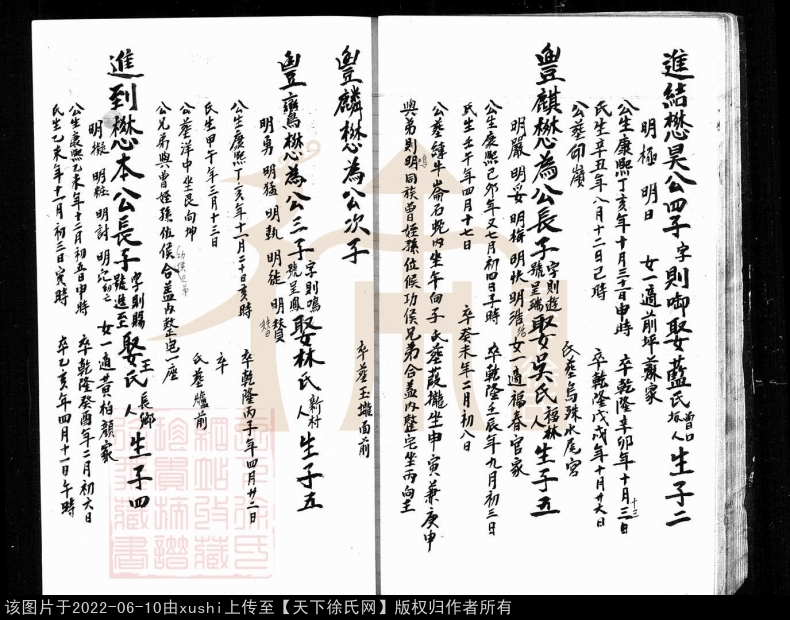 進結 懋昊公四子 字則 娶藍氏 人 生子二
明極 明日 女一適前坪蘇家
公生康熙丁亥年十月三十日申時 卒乾隆辛卯年十月三日
氏生辛五年八月十二日己時 卒乾隆戊戌年十月廿六日
公葬仰 氏葬烏珠水尾宮
豐麒 懋為公長子 字則遊 號呈瑞 娶吳氏 福林人 生子五
明嚴 明妥 明梅 明快 明浩 女一適福春官家
公生康熙己卯年又七月初四日子時 卒乾隆壬辰年九月初三日
氏生壬午年四月十七 卒癸未年二月初八
公葬 牛崙石 內坐午向子 氏葬葭 坐申寅兼庚申
與弟則鳴同族曾姪孫位候功侯兄弟合葬內整宅坐丙向壬
豐麟 懋為公次子
卒葬玉 面前
豐鸞 懋為公三子 字則鳴 號呈鳳 娶林氏 新村人 生子五
明勇 明猛 明執 明徒 明贊
公生康熙丁亥年十一月二十日亥時 卒乾隆丙子年四月廿二日
氏生甲午年三月十三日 卒
公葬洋中坐艮向坤 氏葬 前
公兄弟與曾姪孫位侯功侯兄弟合葬內整宅一座
進到 懋本公長子 字則賜 號進至 娶王氏 長鄉人 生子四
明擬 明粧 明討 明 女一適黃柏顏家
公生康熙乙未年十二月初五日申時 卒乾隆癸酉年二月初六日
氏生乙未年十一月初三日寅時 卒乙亥年四月十一日午時
該图片于2022-06-10由xushi上传至【天下徐氏网】版权归作者所有